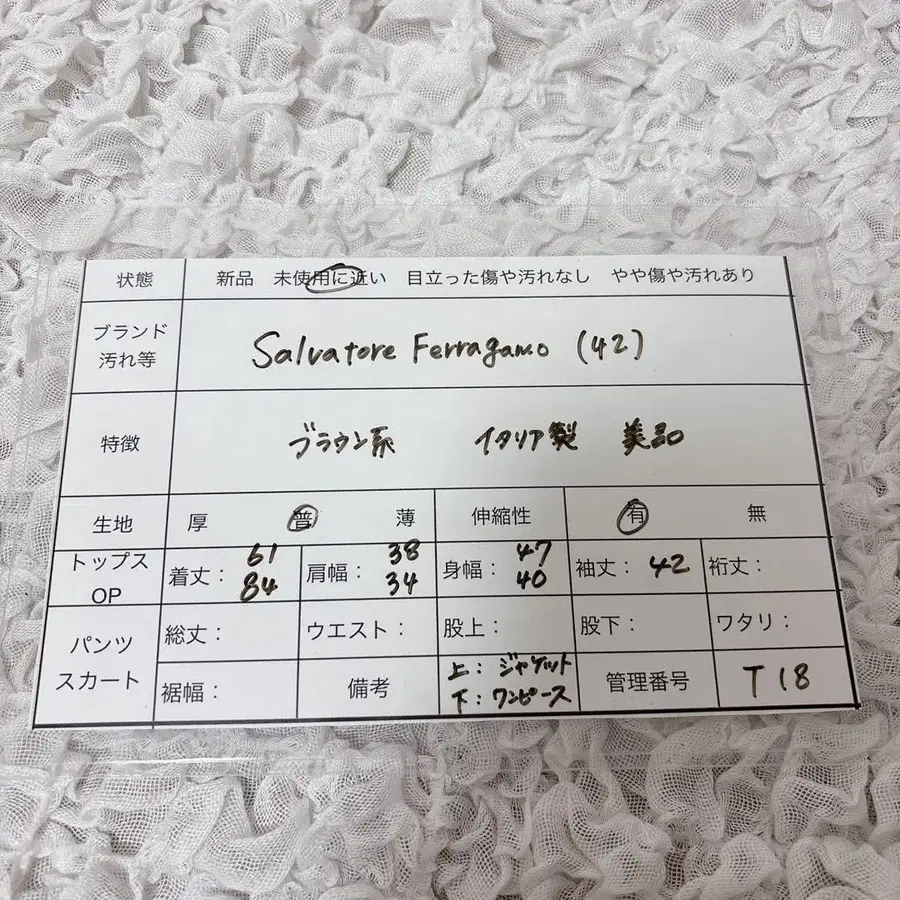 状態 新品 未使用に近い 目立った傷や汚れなし やや傷や汚れあり
ブランド
汚れ等
Salvatore Ferragamo (42)
特徴 ブラウン系 イタリア製 美品
生地 厚 普 薄 伸縮性 有 無
トップス
OP
着丈: 61
84
肩幅: 38
34
身幅: 47
40
袖丈: 42
裄丈:
パンツ
スカート
総丈: ウエスト: 股上: 股下: ワタリ:
裾幅: 備考
上: ジャケット
下: ワンピース
管理番号 T18